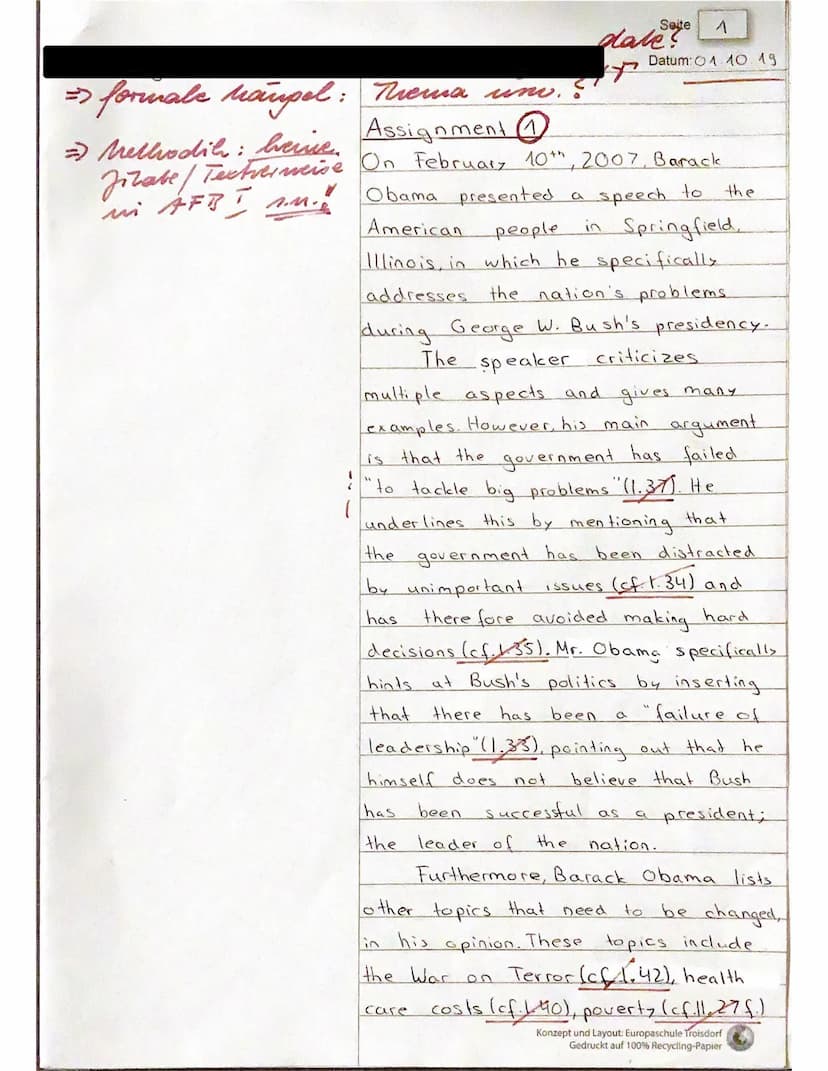 Seite 1
date?
Datum: 01 10 19
⇒ formale Mängel: Thema usw.?
Assignment 1
⇒ Methodik: keine
Zitate / Textverweise
in AFB I s.u.!
On February 10th, 2007, Barack
Obama presented a speech to the
American people in Springfield,
Illinois, in which he specifically
addresses the nation's problems
during George W. Bush's presidency.
The speaker criticizes
multiple aspects and gives many
examples. However, his main argument
is that the government has failed
"to tackle big problems" (l.37). He
underlines this by mentioning that
the government has been distracted
by unimportant issues (cf. l. 34) and
has therefore avoided making hard
decisions (cf. l.35). Mr. Obama specifically
hints at Bush's politics by inserting
that there has been a "failure of
leadership" (l.33), pointing out that he
himself does not believe that Bush
has been successful as a president;
the leader of the nation.
Furthermore, Barack Obama lists
other topics that need to be changed,
in his opinion. These topics include
the War on Terror (cf. l.42), health
care costs (cf. l.40), poverty (cf. ll. 27 f.)
Konzept und Layout: Europaschule Troisdorf
Gedruckt auf 100% Recycling-Papier